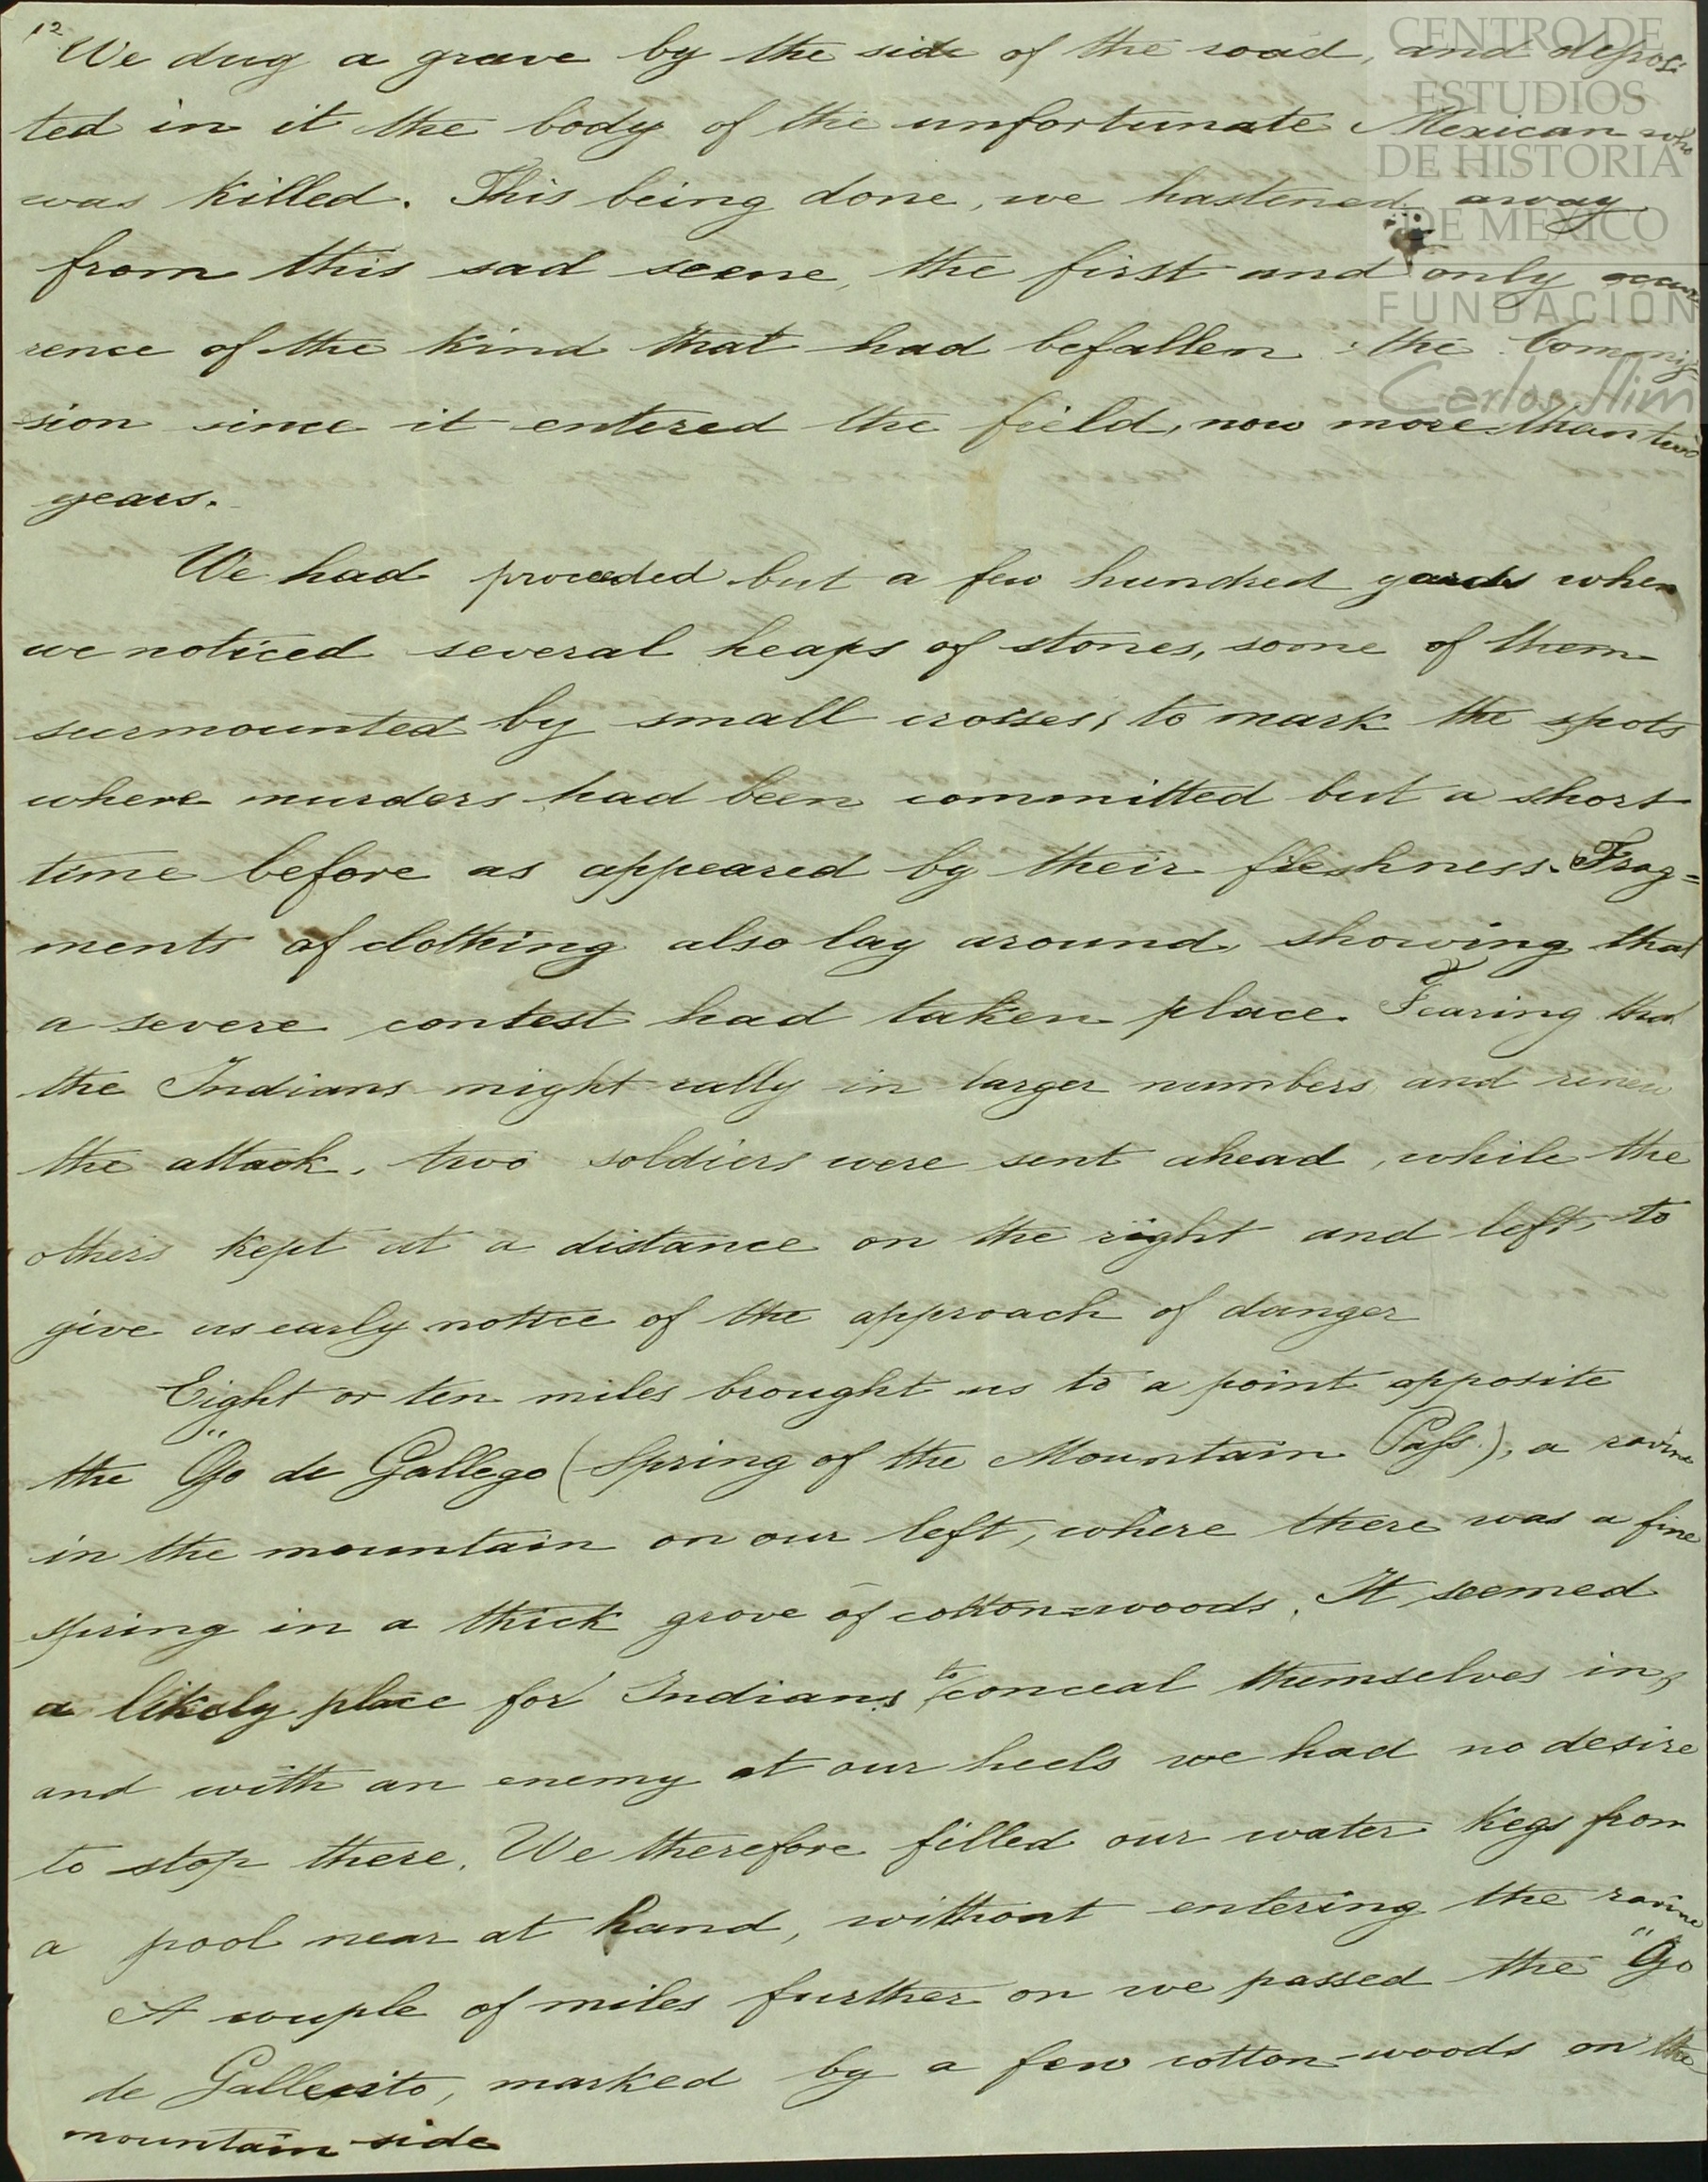 12
We dug a grave by the side of the road, and deposi
ted in it the body of the unfortunate Mexican who
was killed. This being done, we hastened away
from this sad scene, the first and only occur
rence of the kind that had befallen the Commis
sion since it entered the field, now more than two
years.
We had proceeded but a few hundred yards when
we noticed several heaps of stones, some of them
surmounted by small crosses, to mark the spots
where murders had been committed but a short
time before as appeared by their freshness. Frag=
ments of clothing also lay around, showing that
a severe contest had taken place. Fearing that
the Indians might rally in larger numbers and renew
the attack, two soldiers were sent ahead, while the
others kept at a distance on the right and left, to
give us early notice of the approach of danger
Eight or ten miles brought us to a point opposite
the "Ojo de Gallego (Spring of the Mountain Pass.), a ravine
in the mountain on our left, where there was a fine
spring in a thick grove of cotton=woods. It seemed
a likely place for Indians to conceal themselves in,
and with an enemy at our heels we had no desire
to stop there. We therefore filled our water kegs from
a pool near at hand, without entering the ravine
A couple of miles further on we passed the "Ojo
de Gallecito, marked by a few cotton-woods on the
mountain side
CENTRO DE
ESTUDIOS
DE HISTORIA
DE MEXICO
FUNDACIÓN
Carlos Slim